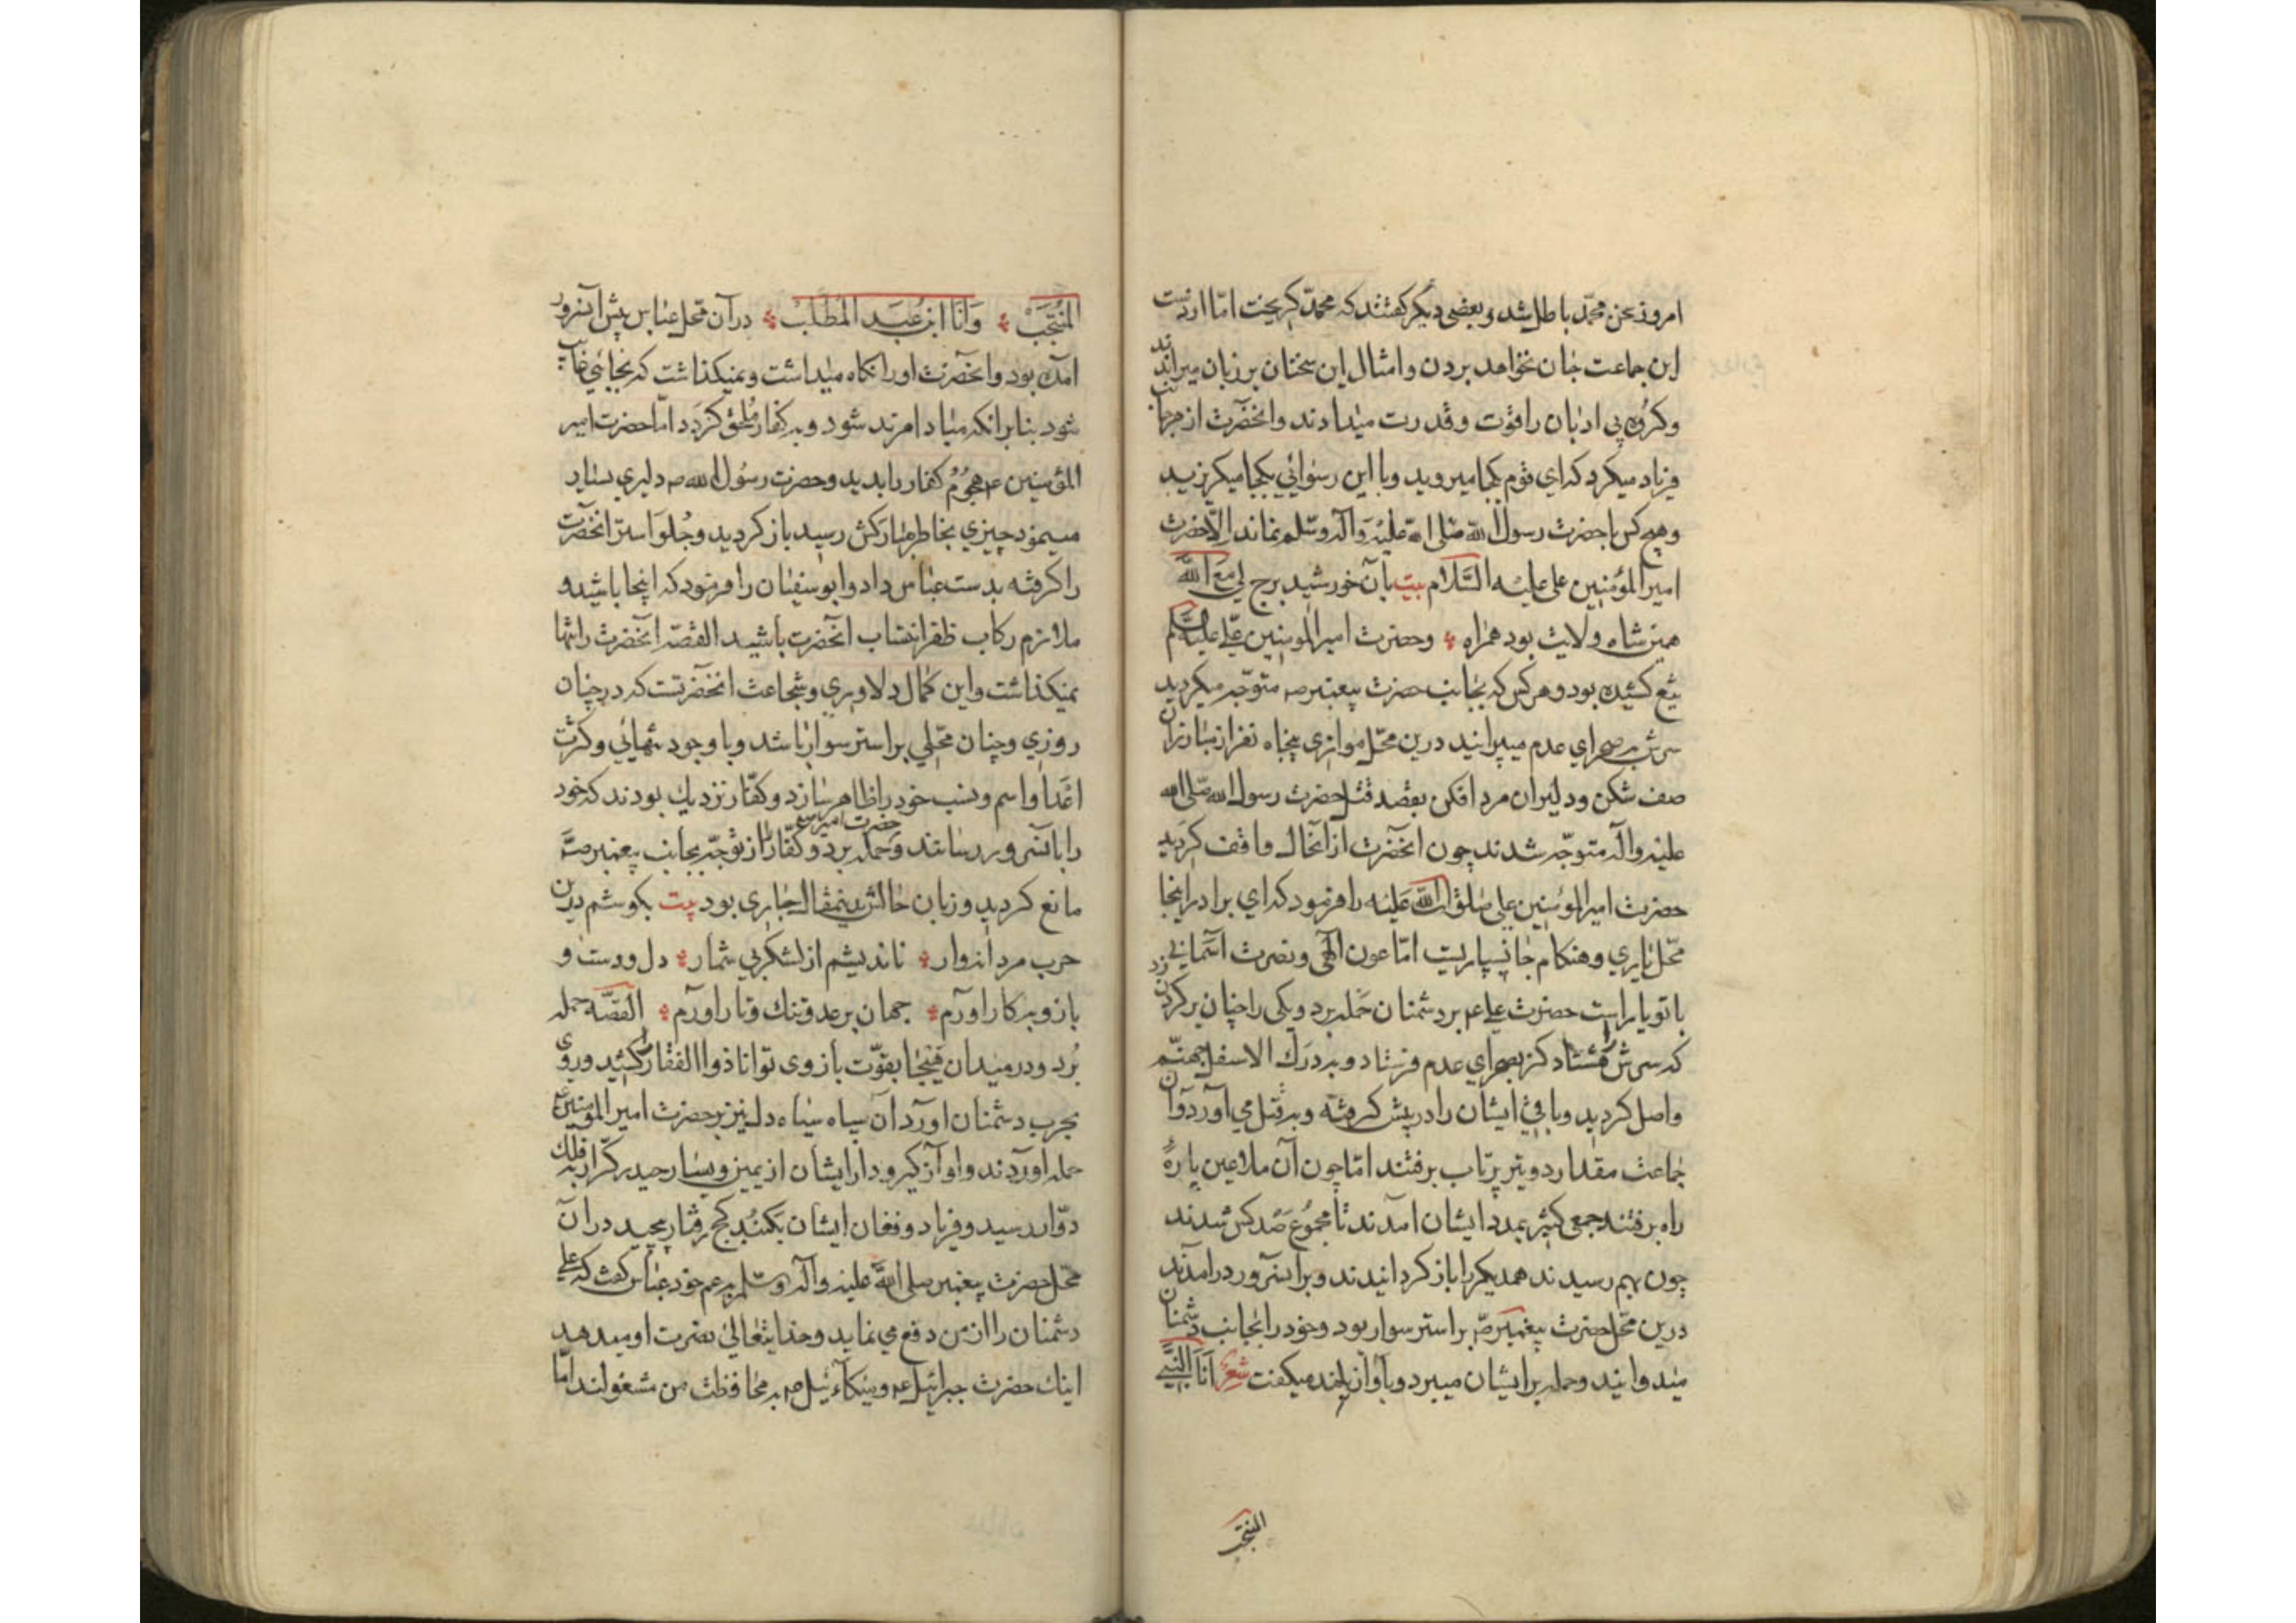 امروز سخن محمّد باطل شد و بعضی دیکر کفتند که محمّد کریخت امّا از دست
این جماعت جان نخواهد بردن و امثال این سخنان بر زبان میراندند
و کروه بی ادبان را قوّت و قدرت میدادند و انحضرت از هر جانب
فریاد میکرد که ای قوم بکجا میروید و با این رسوائی بکجا میکریزید
و هیچ کس با حضرت رسول الله صلی الله علیه و آله وسلم نماند الّا حضرت
امیر المؤمنین علی علیه السّلام بیت بآن خورشید برج لی مع الله
همین شاه ولایت بود همراه و حضرت امیر المومنین علی علیه السلم
تیغ کشیده بود و هر کس که بجانب حضرت پیغمبر صه متوجّه میکردید
سرش بصحرای عدم میپرانید درین محل موازی پنجاه نفر از مبارزان
صف شکن و دلیران مرد افکن بقصد قتل حضرت رسول الله صلی الله
علیه و آله متوجّه شدند چون انحضرت از آنحال واقف کردید
حضرت امیر المؤمنین علی صلوات الله علیه را فرمود که ای برادر اینجا
محلّ یاری و هنکام جانسپاریست امّا عون الهی و نصرت آسمانی
با تو یار است حضرت علی عم بر دشمنان حمله برد و یکی را چنان بر کردن زد
که سرش بصحرای عدم فرستاد و بدرک الاسفل جهنّم
واصل کردید و باقی ایشان را در پیش کرفته و بقتل می آورد و آن
جماعت مقدار دو تیر پرتاب برفتند امّا چون آن ملاعین پارهٔ
راه برفتند جمعی کثیر بمدد ایشان آمدند تا مجموع صد کس شدند
چون بهم رسیدند همدیکر را باز کردانیدند و بر آنسرور درآمدند
درین محل حضرت پیغمبر صه بر استر سوار بود و خود را بجانب دشمنان
میدوانید و حمله بر ایشان میبرد و بآواز بلند میکفت شعر اَنَا النَّبیّ
المنتجب
المُنتجَبْ وَاَنَا ابن عَبد المُطَّلبْ در آن محل عبّاس پیش آنسرور
آمده بود و انحضرت او را نکاه میداشت و نمیکذاشت که بجائی غایب
شود بنابر انکه مبادا مرتد شود و بکفار ملحق کردد امّا حضرت امیر
المؤمنین عم هجوم کفار را بدید و حضرت رسول الله صه دلیری بسیار
مینمود چیزی بخاطر مبارکش رسید باز کردید و جلو استر انحضرت
را کرفته بدست عباس داد و ابوسفیان را فرمود که اینجا باشید و
ملازم رکاب ظفر انتساب انحضرت باشید القصّه انحضرت را تنها
نمیکذاشت و این کمال دلاوری و شجاعت انحضرتست که در چنان
روزی و چنان محلی بر استر سوار باشد و با وجود تنهائی و کثرت
اعدا و اسم و نسب خود را ظاهر سازد و کفّار نزدیک بودند که خود
را بآنسرور رسانند حضرت امیر عم حمله برد و کفّار را از توجّه بجانب پیغمبر صه
مانع کردید و زبان حالش بدینمقال جاری بود بیت بکوشم درین
حرب مردانه وار نه اندیشم از لشکر بی شمار دل و دست و
بازو بکار آورم جهان بر عدو تنک و تار آورم القصّه حمله
بُرد و در میدان هیجا بقوّت بازوی توانا ذوالفقار کشید و روی
بحرب دشمنان آورد آن سپاه سیاه دل نیز بر حضرت امیر المؤمنین عم
حمله آوردند و آواز کیر و دار ایشان از یمین و یسار حیدر کرّار بفلک
دوّار رسید و فریاد و فغان ایشان بکنبد کج رفتار پیچید در آن
محل حضرت پیغمبر صلی الله علیه و آله وسلم بعم خود عبّاس کفت که علی
دشمنان را از من دفع می نماید و خدایتعالی نصرت او میدهد
اینک حضرت جبرائیل عم و میکآئیل عم بمحافظت من مشغولند امّا